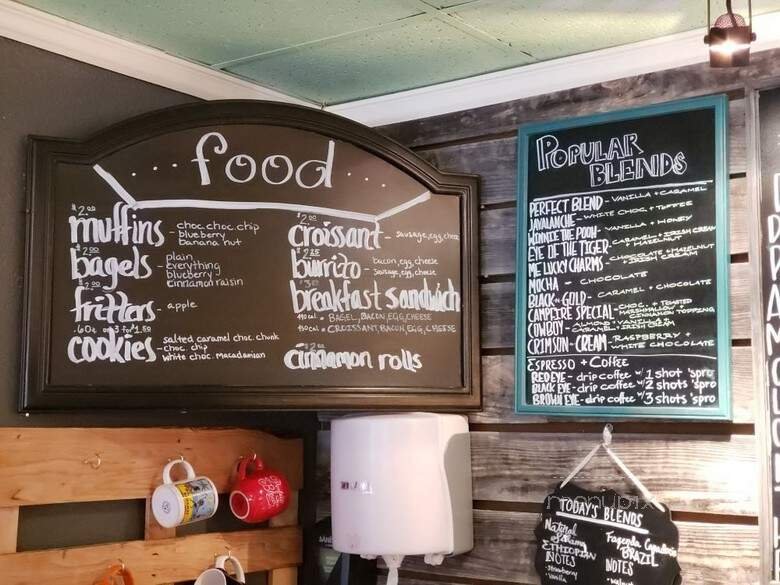 food
$2.00
muffins - choc. choc. chip
blueberry
banana nut
$2.00
bagels - plain
everything
blueberry
cinnamon raisin
$2.00
fritters - apple
.60¢ or 3 for $1.50
cookies - salted caramel choc. chunk
choc chip
white choc. macadamian
$2.00
croissant - sausage, egg, cheese
burrito - bacon, egg, cheese
- sausage, egg, cheese
breakfast sandwich
- BAGEL, BACON, EGG, CHEESE
- CROISSANT, BACON, EGG, CHEESE
cinnamon rolls
POPULAR
BLENDS
PERFECT BLEND - VANILLA + CARAMEL
JAVALANCHE - WHITE CHOC. + TOFFEE
WINNIE THE POOH - VANILLA + HONEY
EYE OF THE TIGER - CARAMEL + IRISH CREAM + HAZELNUT
ME LUCKY CHARMS - CHOCOLATE + HAZELNUT + IRISH CREAM
MOCHA - CHOCOLATE
BLACK N GOLD - CARAMEL + CHOCOLATE
CAMPFIRE SPECIAL - CHOC. + TOASTED MARSHMALLOW + CINNAMON TOPPING
COWBOY - ALMOND + VANILLA + CARAMEL + IRISH CREAM
CRIMSON + CREAM - RASPBERRY + WHITE CHOCOLATE
ESPRESSO + COFFEE
RED EYE - drip coffee w/ 1 shot 'spro
BLACK EYE - drip coffee w/ 2 shots 'spro
BROWN EYE - drip coffee w/ 3 shots 'spro
TODAY'S BLENDS
Natural
ETHIOPIAN
NOTES
- strawberry
- vanilla
BRAZIL
NOTES